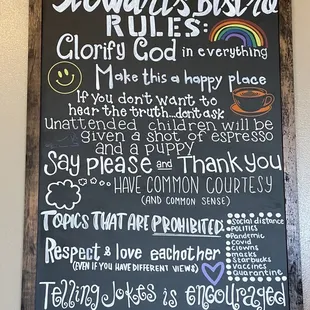 Stewart's Bistro
RULES:
Glorify God in everything
Make this a happy place
If you don't want to
hear the truth...dont ask
unattended children will be
given a shot of espresso
and a puppy
Say please and Thank you
HAVE COMMON COURTESY
(AND COMMON SENSE)
TOPICS THAT ARE PROHIBITED:
Social distance
POLITICS
Pandemic
Covid
Clowns
masks
Starbucks
Vaccines
Quarantine
Respect & love eachother
(EVEN IF YOU HAVE DIFFERENT VIEWS)
Telling Jokes is encouraged